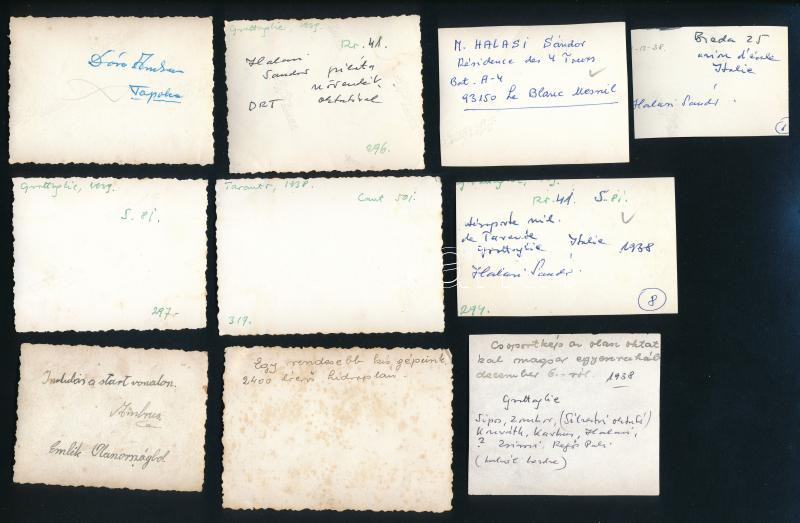 Dóró Ambrus
Tapolca
Grottaglie, 1939.
Ro. 41.
Halasi
Sandor pilóta
növendék
DRT oktatóval
296.
M. HALASI Sándor
Résidence des 4 Tours
Bat. A-4
93150 Le Blanc Mesnil
Breda 25
avion d'école
Italie
Halasi Sandor
1
Grottaglie, 1939.
S. 81.
297.
Taranto, 1938.
Cant 501.
319.
Ro. 41. S. 81.
aéroporte mil.
de Tarente
Grottaglie Italie 1938
Halasi Sandor
294.
8
Indulás a start vonalon.
Ambrus
Emlék Olaszországból
Egy rendesebb kis gépünk
2400 lóerő hidroplan.
Csoportkép az olasz oktat
kal magyar egyenruhába
december 6.-ról. 1938
Grottaglie
Sipos, Zombor, (Silvestri oktató)
Horváth, Karkus, Halasi,
? Zsirmi. Regős Pali.
(balról jobbra)